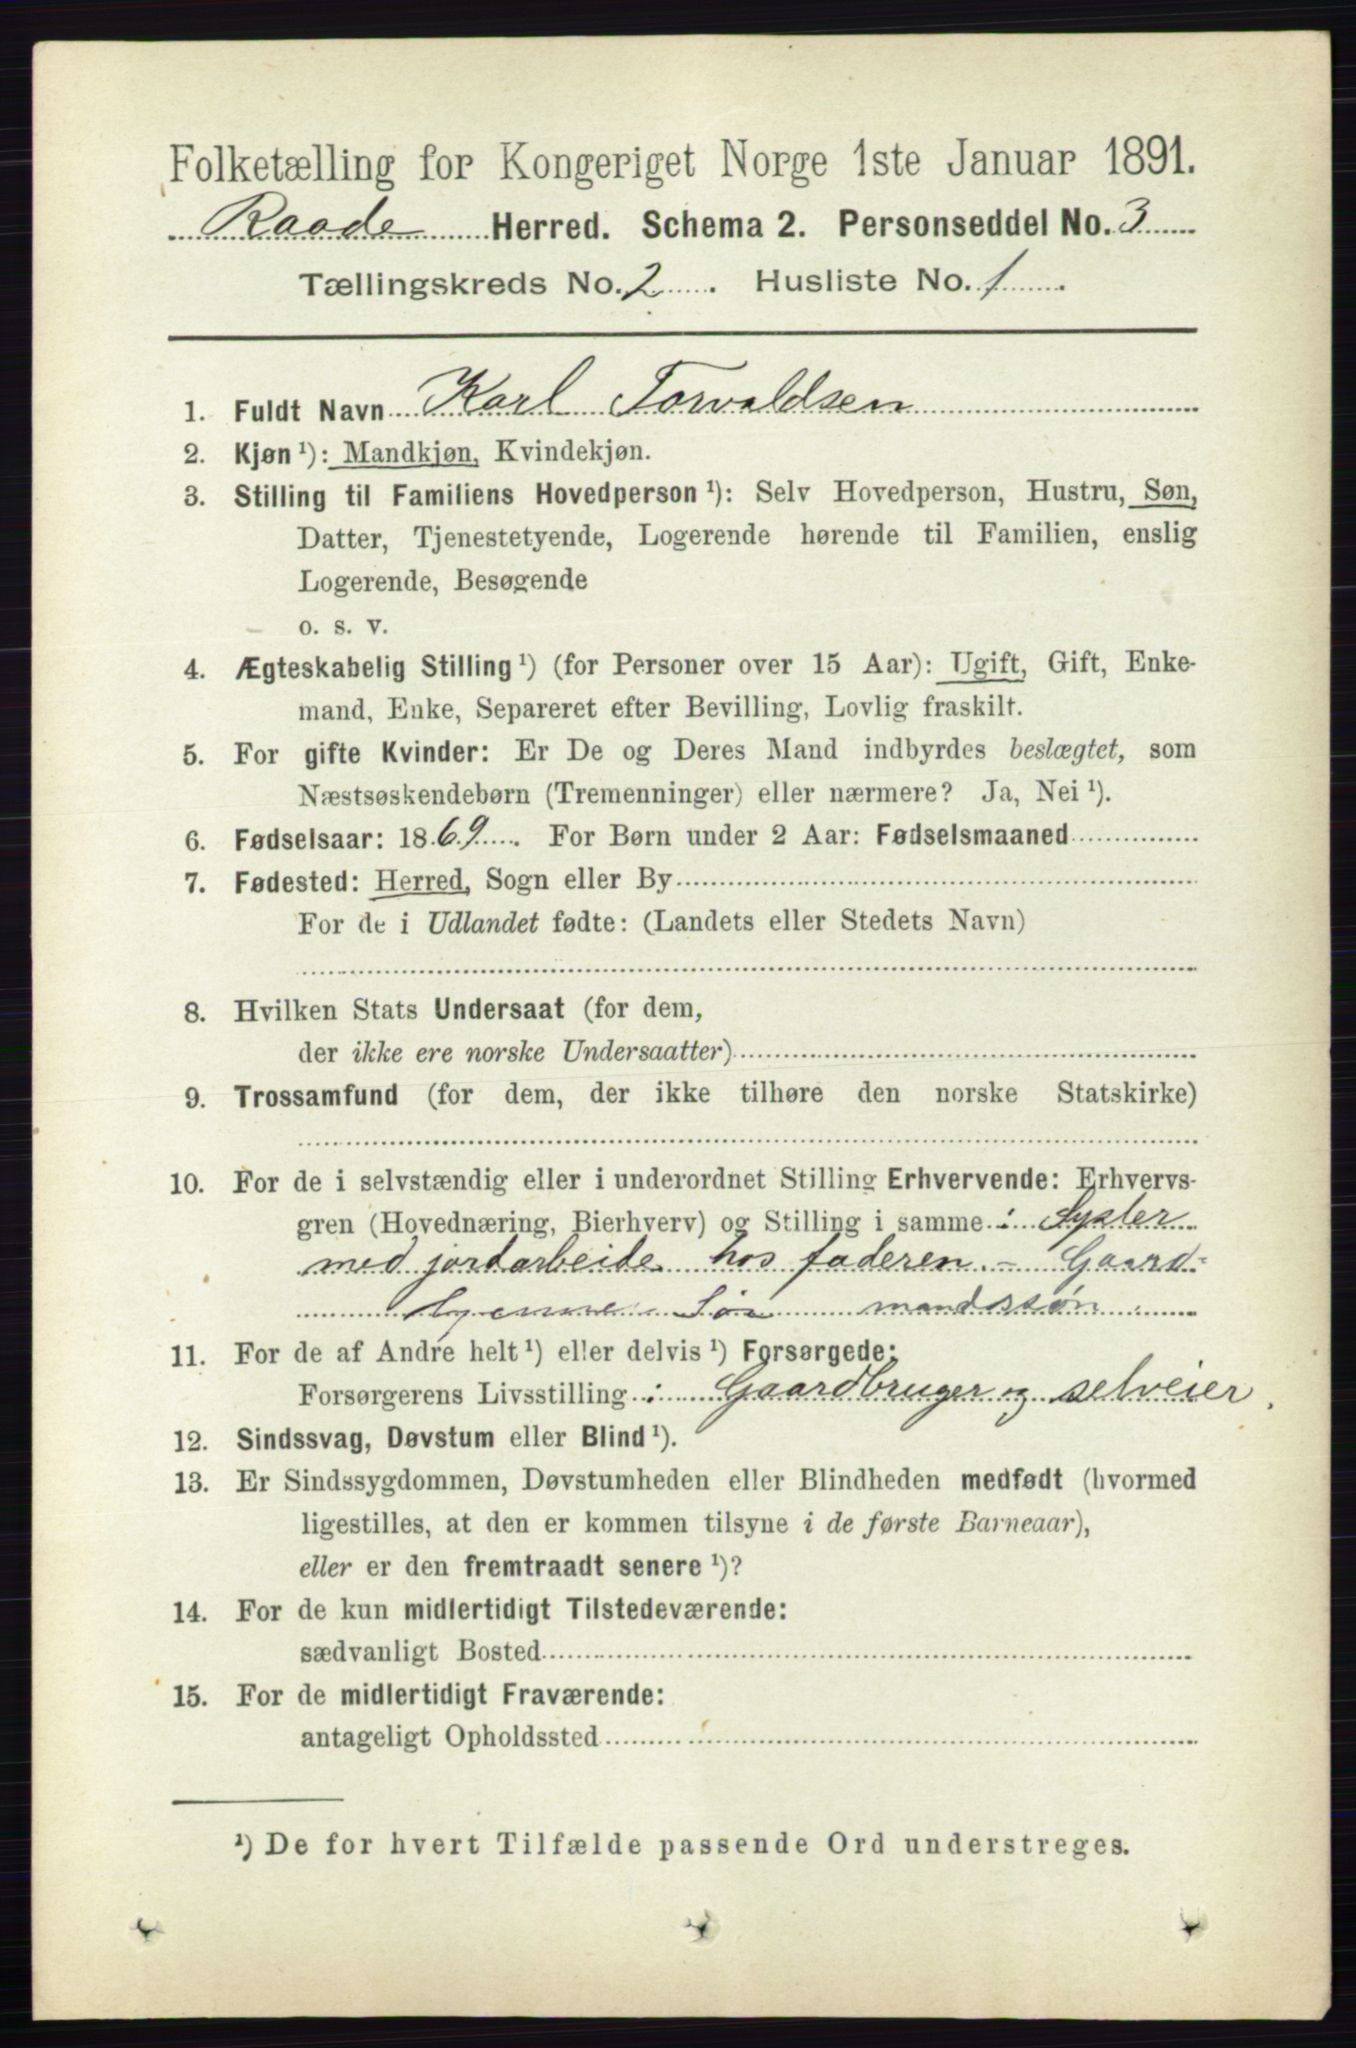 Folketælling for Kongeriget Norge 1ste Januar 1891.
Raade Herred. Schema 2. Personseddel No. 3
Tællingskreds No. 2. Husliste No. 1.
1. Fuldt Navn Karl Torvaldsen
2. Kjøn ¹): Mandkjøn, Kvindekjøn.
3. Stilling til Familiens Hovedperson ¹): Selv Hovedperson, Hustru, Søn,
Datter, Tjenestetyende, Logerende hørende til Familien, enslig
Logerende, Besøgende
o. s. v.
4. Ægteskabelig Stilling ¹) (for Personer over 15 Aar): Ugift, Gift, Enke-
mand, Enke, Separeret efter Bevilling, Lovlig fraskilt.
5. For gifte Kvinder: Er De og Deres Mand indbyrdes beslægtet, som
Næstsøskendebørn (Tremenninger) eller nærmere? Ja, Nei ¹).
6. Fødselsaar: 1869. For Børn under 2 Aar: Fødselsmaaned
7. Fødested: Herred, Sogn eller By
For de i Udlandet fødte: (Landets eller Stedets Navn)
8. Hvilken Stats Undersaat (for dem,
der ikke ere norske Undersaatter)
9. Trossamfund (for dem, der ikke tilhøre den norske Statskirke)
10. For de i selvstændig eller i underordnet Stilling Erhvervende: Erhvervs-
gren (Hovednæring, Bierhverv) og Stilling i samme : Sysler
med jordarbeide hos faderen. - Gaard-
mandssøn.
11. For de af Andre helt ¹) eller delvis ¹) Forsørgede:
Forsørgerens Livsstilling : Gaardbruger og selveier.
12. Sindssvag, Døvstum eller Blind ¹).
13. Er Sindssygdommen, Døvstumheden eller Blindheden medfødt (hvormed
ligestilles, at den er kommen tilsyne i de første Barneaar),
eller er den fremtraadt senere ¹)?
14. For de kun midlertidigt Tilstedeværende:
sædvanligt Bosted
15. For de midlertidigt Fraværende:
antageligt Opholdssted
¹) De for hvert Tilfælde passende Ord understreges.